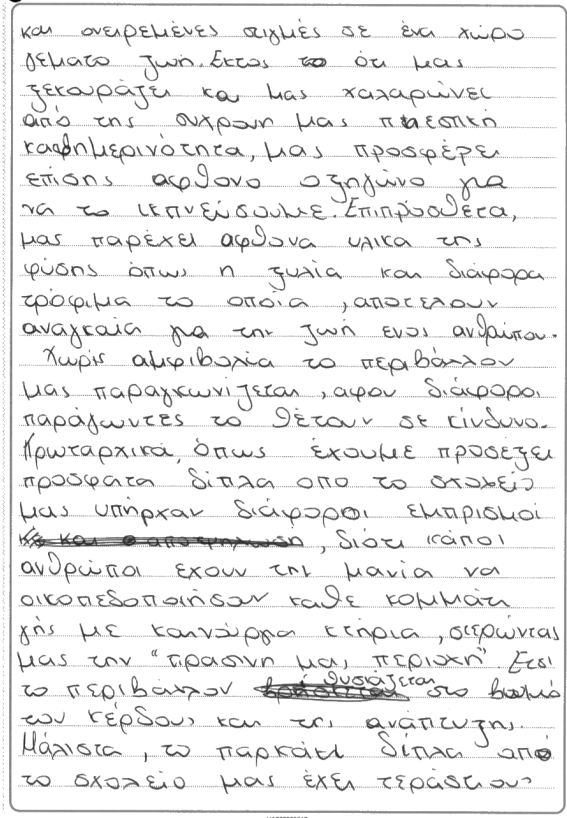 και ονειρεμένες στιγμές σε ένα χώρο
γεματο ζωή. Εκτος το ότι μας
ξεκουράζει και μας χαλαρώνει
από της συχρονη μας πιεστική
καθημερινότητα, μας προσφέρει
επίσης αφθονο οξηγώνο για
να το εισπνεύσουμε. Επιπρόσθετα,
μας παρέχει αφθονα υλικα της
φύσης όπως η ξυλία και διάφορα
τρόφιμα το οποία , αποτελουν
αναγκαία για την ζωή ενος ανθρώπου.
Χωρίς αμφιβολία το περιβάλλον
μας παραγκωνίζεται , αφου διάφοροι
παράγωντες το θέτουν σε κίνδυνο.
Πρωταρχικά, όπως έχουμε προσέξει
προσφατα δίπλα απο το σχολείο
μας υπήρχαν διάφοροι εμπρισμοί
, διότι κάποι
ανθρώποι εχουν την μανία να
οικοπεδοποιήσουν καθε κομμάτι
γής με καινούργα κτήρια , στερώντας
μας την "πρασινη μας περιοχή". Ετσι
το περιβάλλον θυσιάζεται στο βωμό
του κέρδους και της ανάπτυξης.
Μάλιστα , το παρκάκι δίπλα από
το σχολείο μας έχει τεράστιους